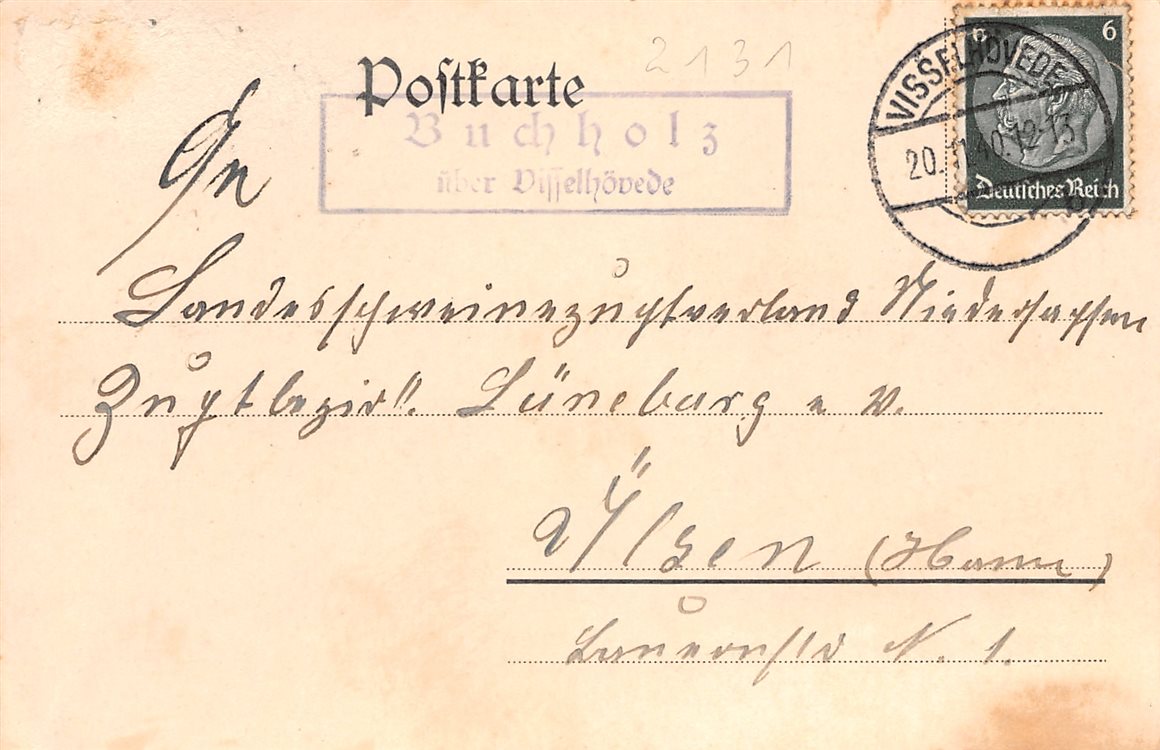 2131
Postkarte
Buchholz
über Visselhövede
VISSELHÖVEDE
20. 12-13
6 6
Deutsches Reich
An
Landesschweinezuchtverband Niedersachsen
Zuchtbezirk. Lüneburg e. V.
Ülzen (Hann)
N. 1.